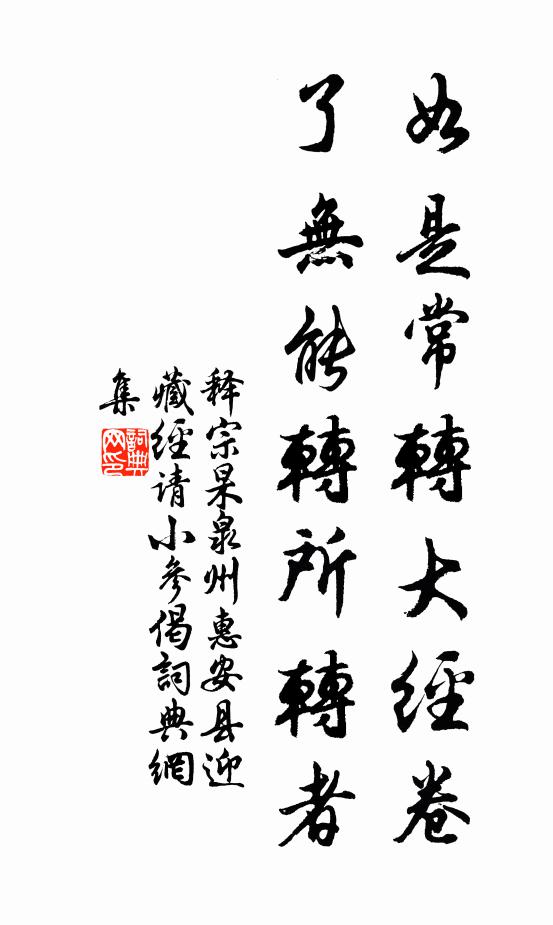 如是常轉大經卷
了無能轉所轉者
释宗杲泉州惠安县迎
藏經请小參偈詞典網
集
詞典網印